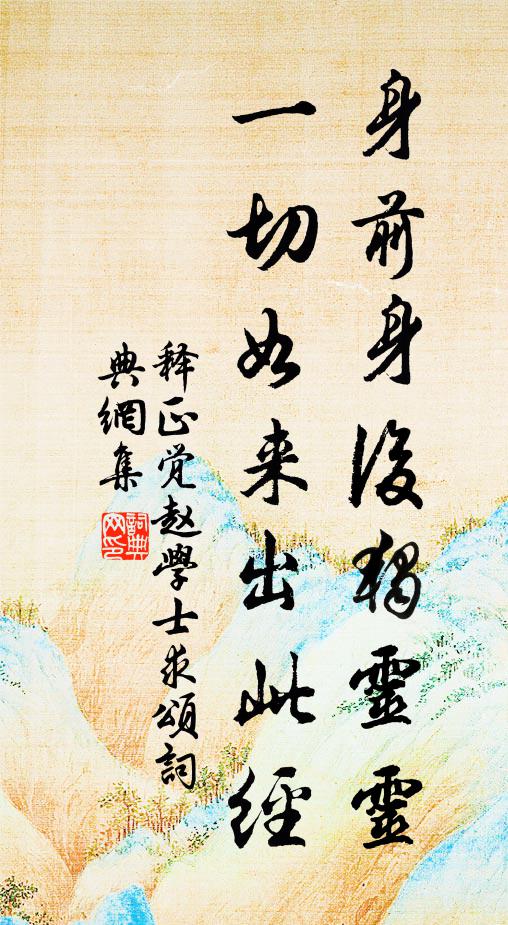 身前身後獨靈靈
一切如来出此經
释正觉赵學士求頌詞
典網集
詞典
网印